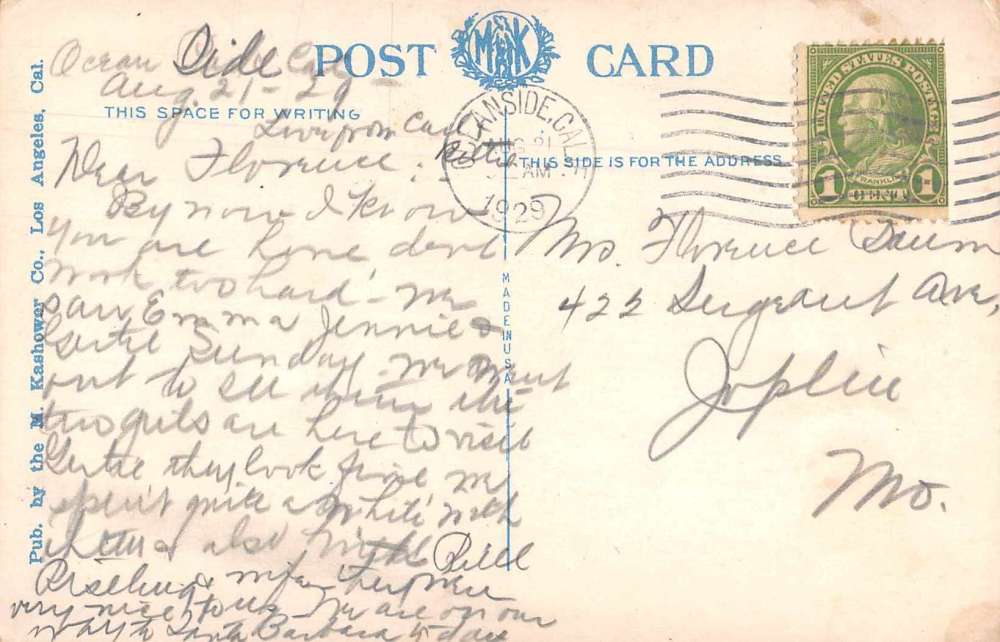 POST CARD
M K
Pub. by the M. Kashower Co., Los Angeles, Cal.
MADE IN USA
THIS SPACE FOR WRITING
THIS SIDE IS FOR THE ADDRESS
OCEANSIDE, CAL.
AUG 21
AM
1929
UNITED STATES POSTAGE
FRANKLIN
1 CENT 1
Ocean Side Cal
Aug. 21-29
Love from Carl
Dear Florence:
By now I know
you are home dont
work too hard - we
saw Emma Jennie &
Gertie Sunday - we went
out to see them the
two girls are here to visit
Gertie they look fine we
spent quite a while with
also with Bill
& wife they were
very nice to us We are on our
way to Santa Barbara to day
Mrs. Florence
422 Sergeant Ave,
Joplin
Mo.